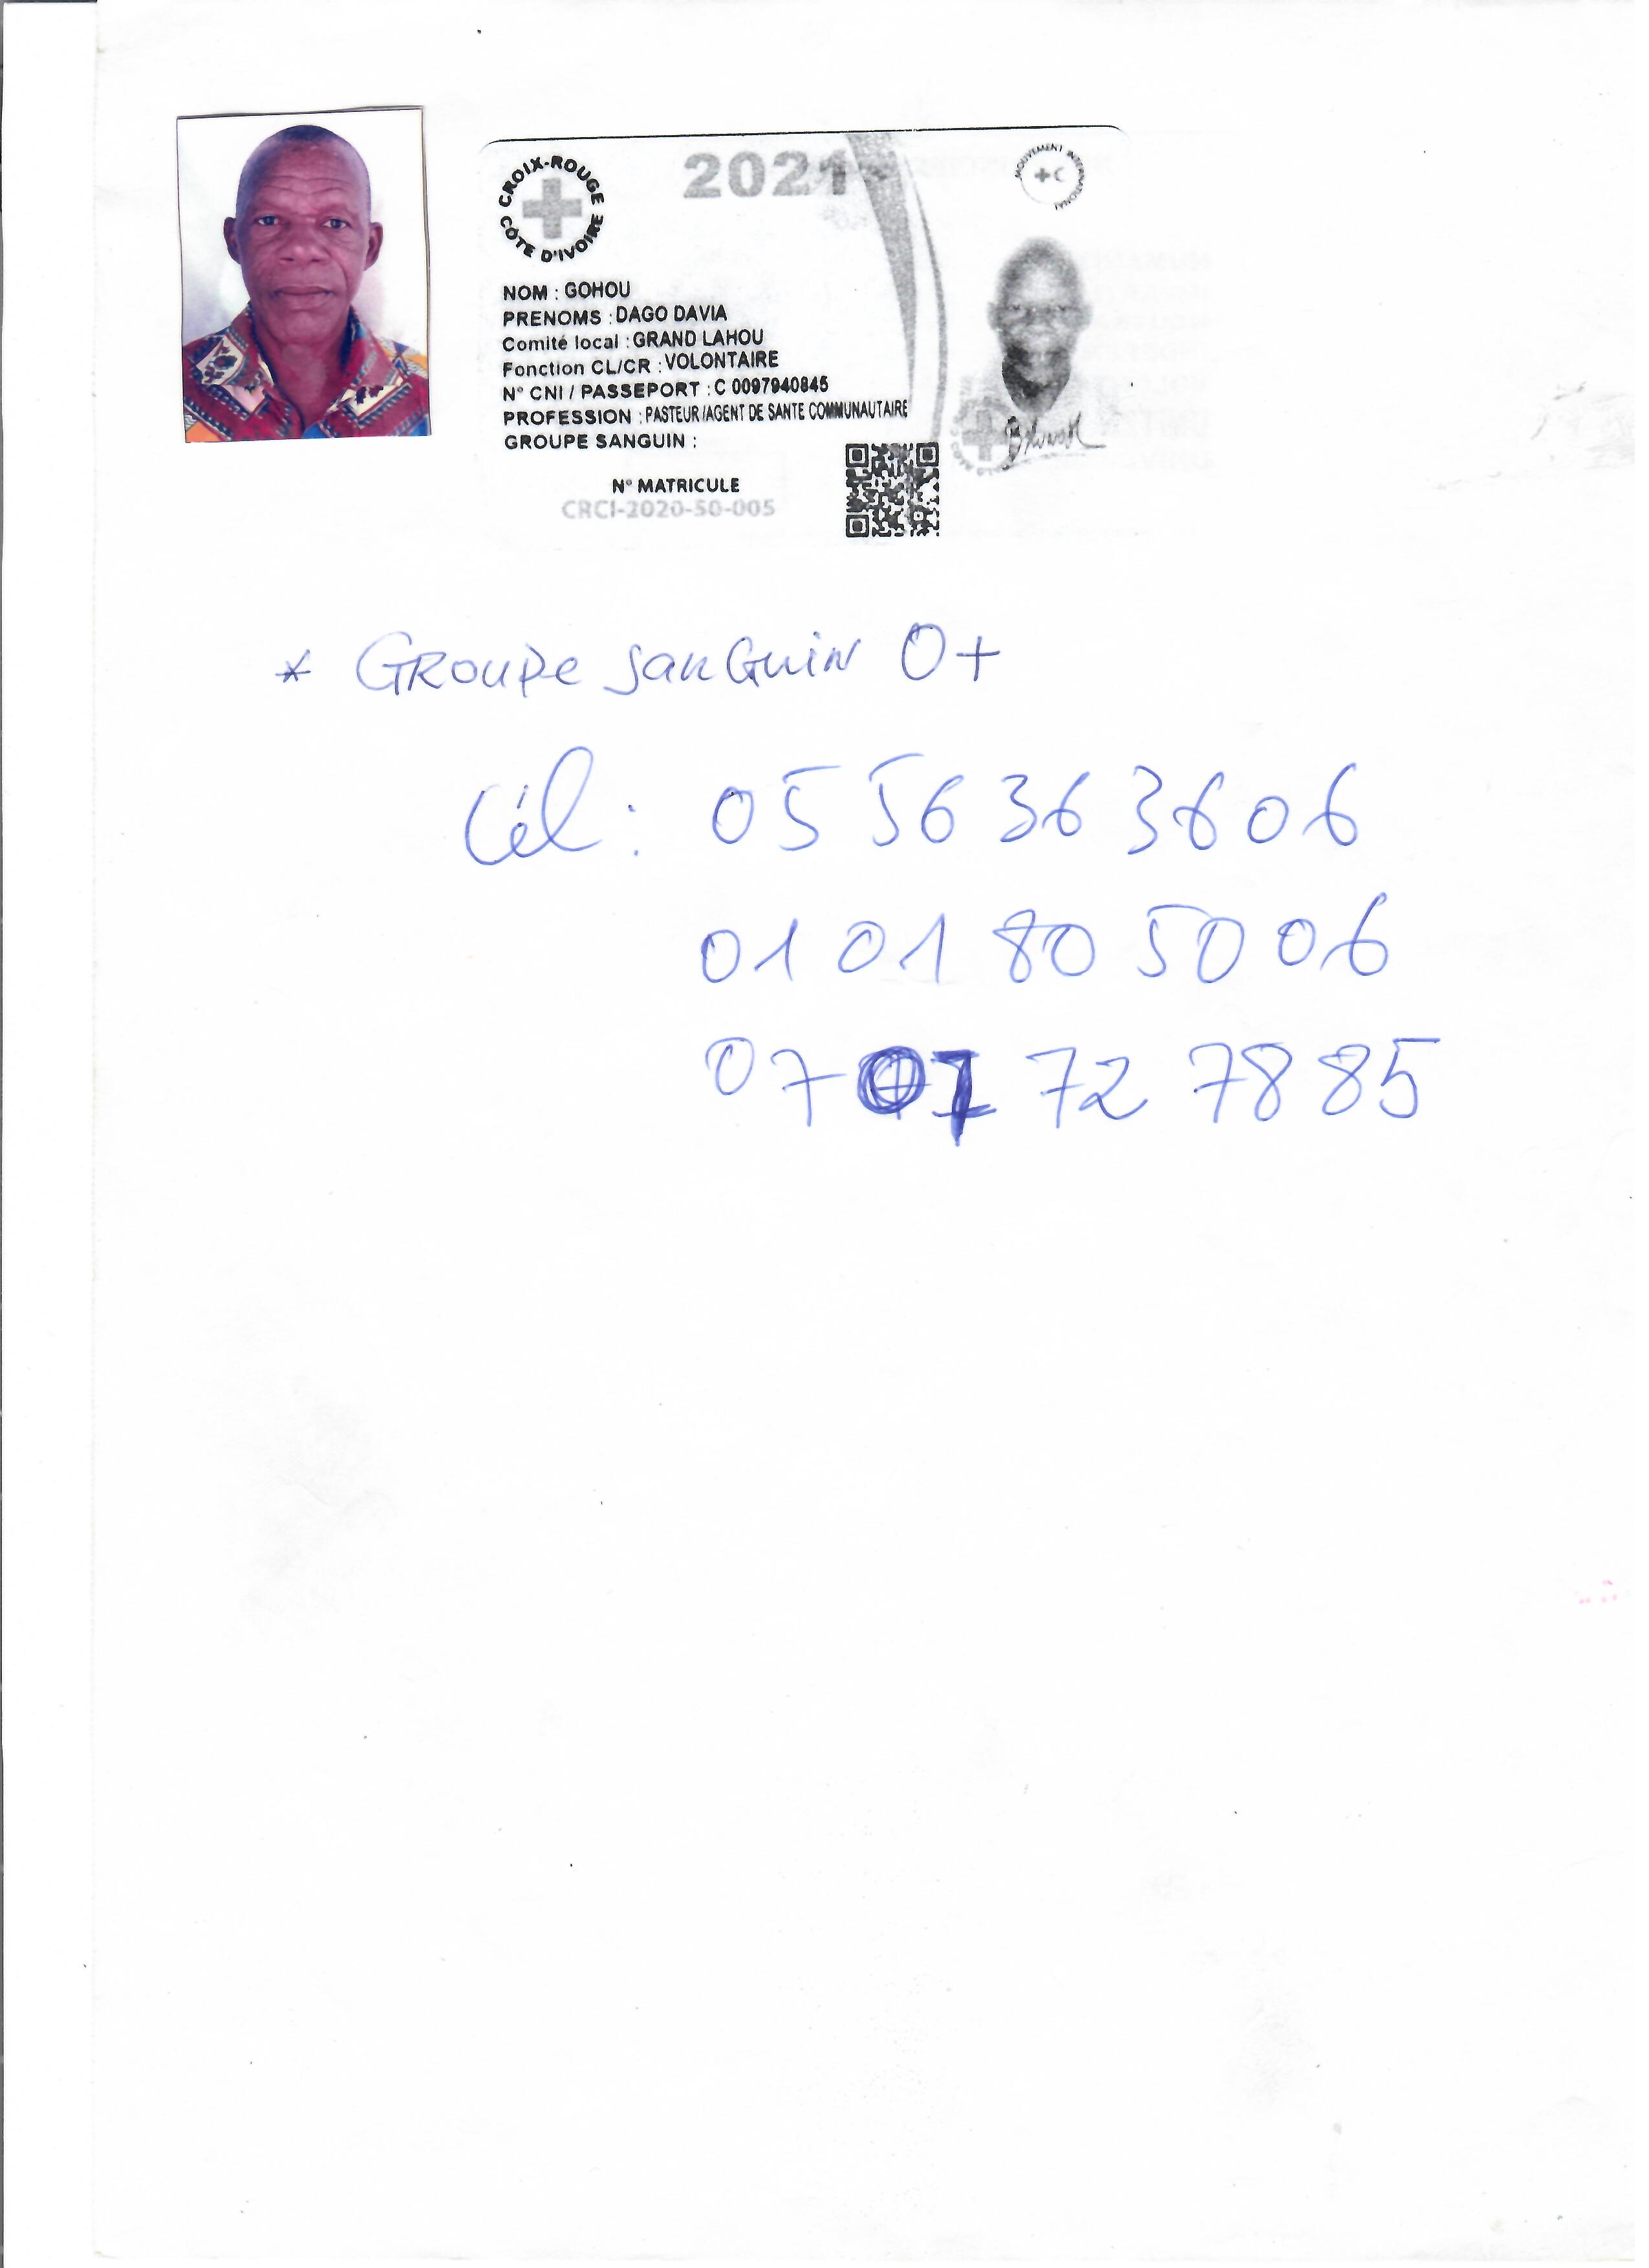 CROIX-ROUGE
CÔTE D'IVOIRE
2021
MOUVEMENT INTERNATIONAL
NOM : GOHOU
PRENOMS : DAGO DAVIA
Comité local : GRAND LAHOU
Fonction CL/CR : VOLONTAIRE
N° CNI / PASSEPORT : C 0097940845
PROFESSION : PASTEUR/AGENT DE SANTE COMMUNAUTAIRE
GROUPE SANGUIN :
N° MATRICULE
CRCI-2020-50-005
* GROUPE SANGUIN O+
Cél : 05 56 36 36 06
01 01 80 50 06
07 07 72 78 85